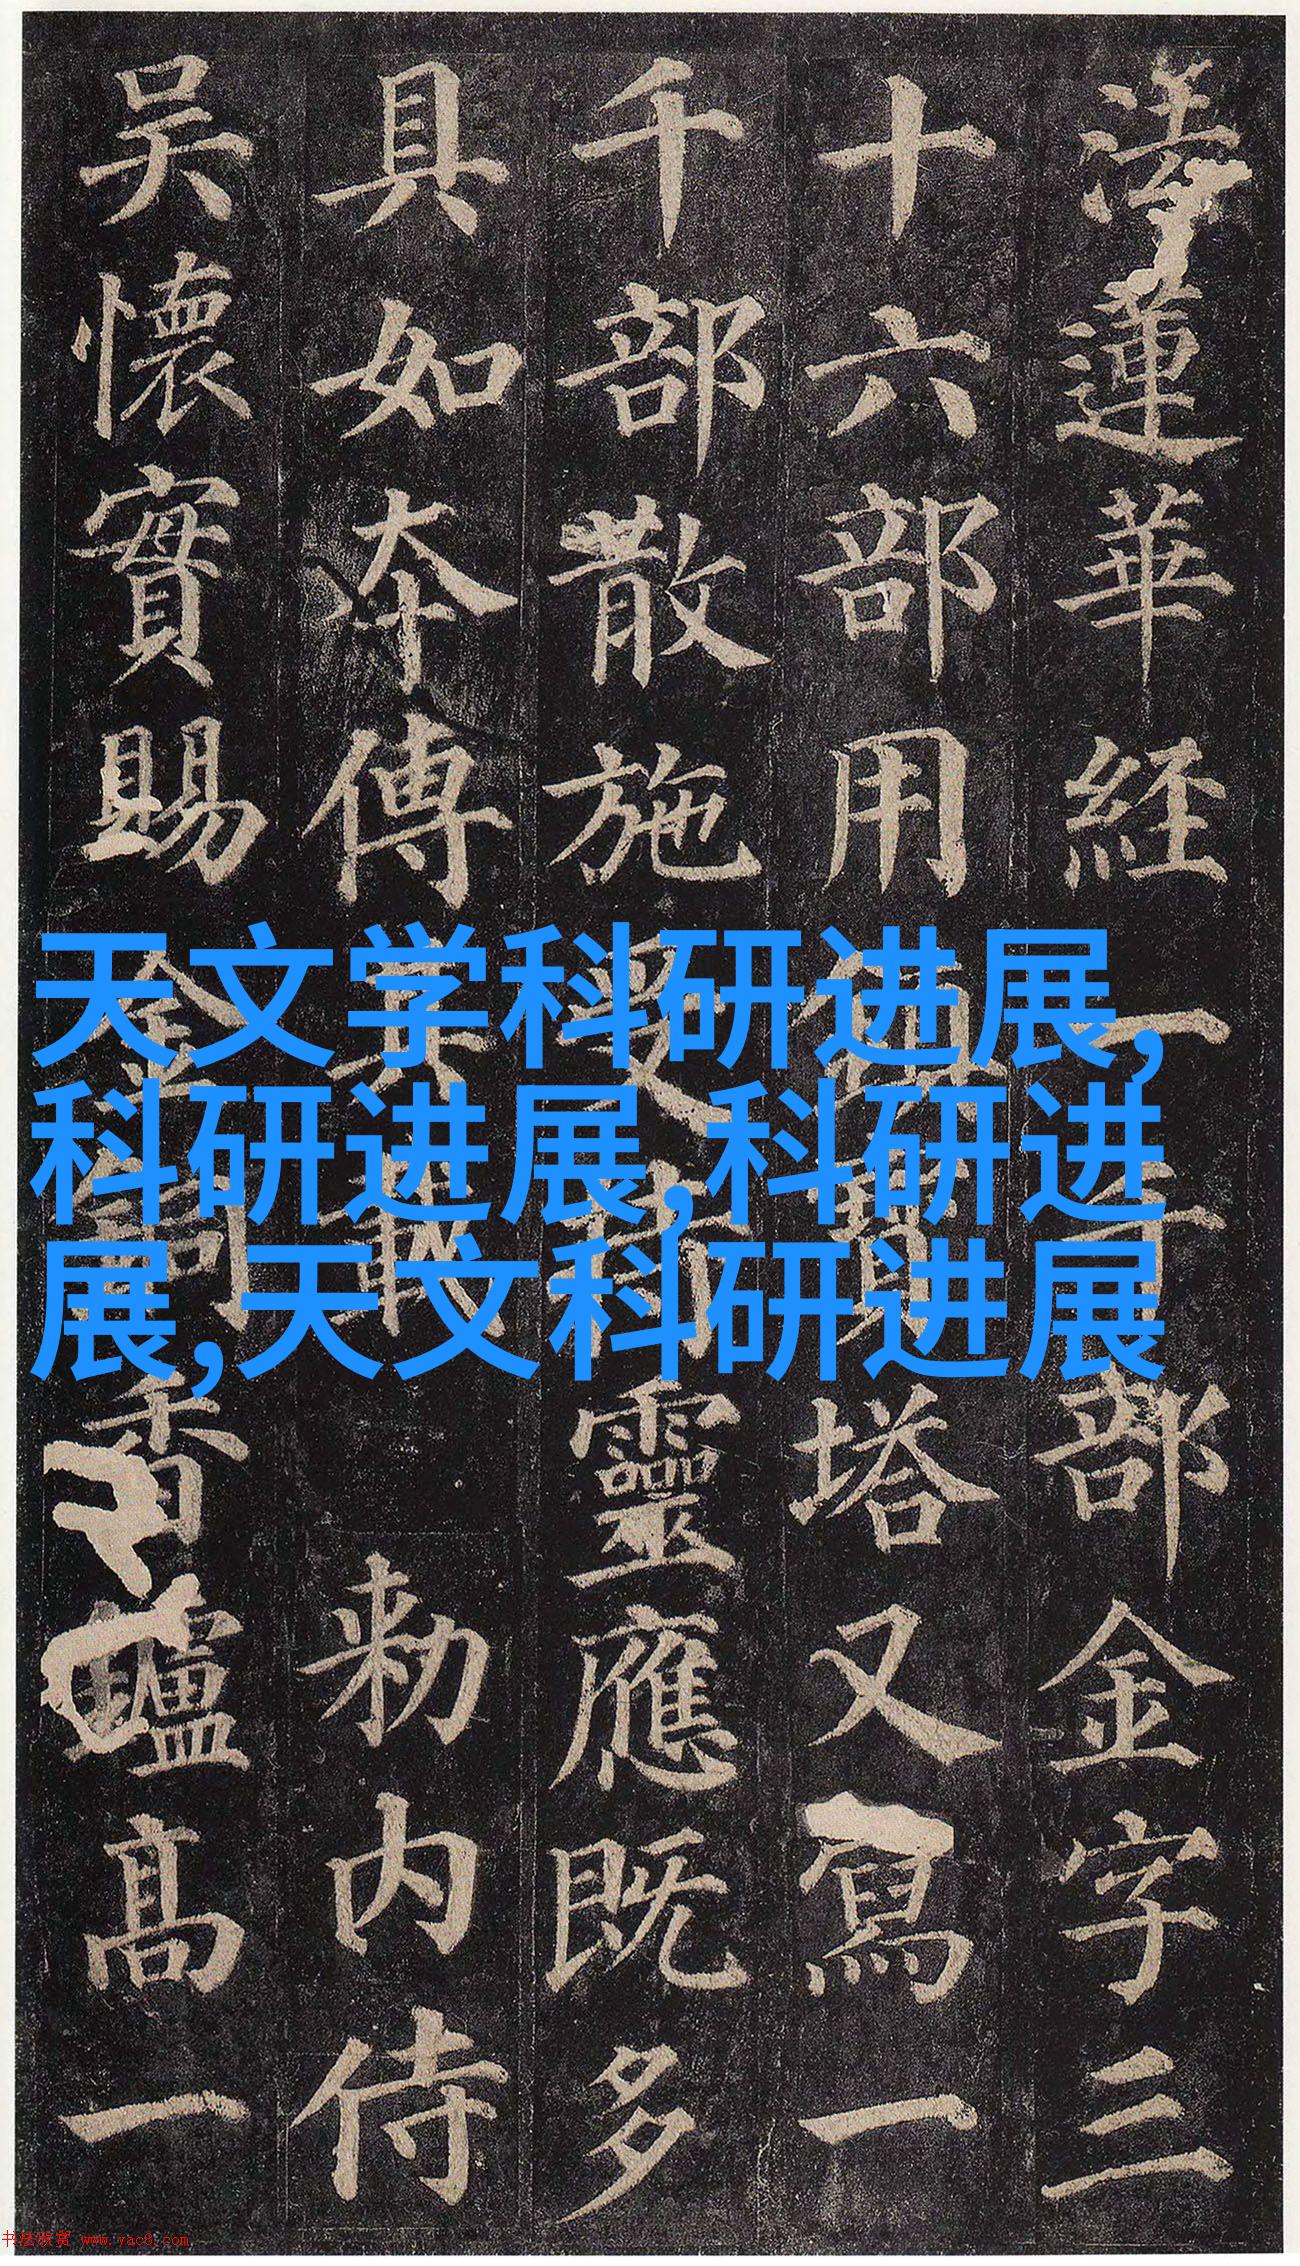 法蓮華經一千部金字三
十六部用鎮寶塔又寫一
千部散施受持靈應既多
具如本傳其載勑内侍
吳懷實賜金銅香爐高一
天文学科研进展,
科研进展,科研进
展,天文科研进展
书法欣赏 www.yac8.com